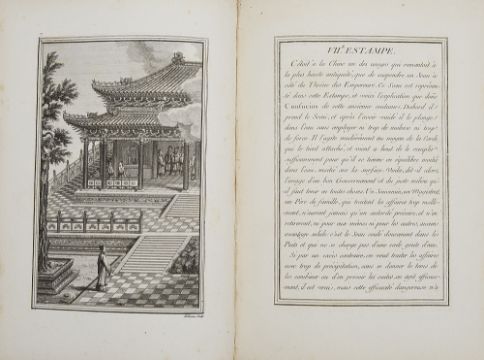 VII.e ESTAMPE.
C'étoit à la Chine un des usages qui remontoit à
la plus haute antiquité, que de suspendre un Seau à
côté du Throne des Empereurs. Ce Seau est représen-
té dans cette Estampe, et voici l'explication que donne
Confucius de cette ancienne coutume. D'abord il
prend le Seau, et après l'avoir vuidé il le plonge
dans l'eau sans employer ni trop de molesse ni trop
de force. Il l'agite modérément au moyen de la Corde
que le tient attaché, et vient à bout de le remplir
suffisamment pour qu'il se tienne en équilibre moitié
dans l'eau, moitié sur la surface. Voila, dit-il alors,
l'image d'un bon Gouvernement et du juste milieu qu'
il faut tenir en toutes choses. Un Souverain, un Magistrat,
un Père de famille, qui traitent les affaires trop molle-
ment, n'auront jamais qu'un autorité précaire, et n'en
retireront, ni pour eux mêmes ni pour les autres, aucun
avantage solide. c'est le Seau coulé doucement dans les
Puits et qui ne se charge pas d'une seule goute d'eau.
Si par un excès contraire, on veut traiter les affaires
avec trop de précipitation, sans se donner le tems de
les combiner ou d'en prévoir les suites, on agit efficace-
ment, il est vrai, mais cette efficacité dangereuse n'a